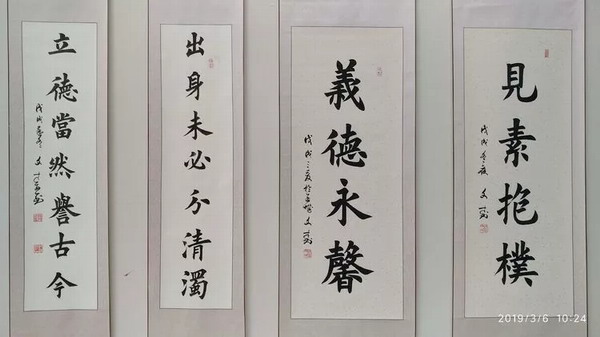 見素抱樸
戊戌
義德永馨
戊戌
出身未必分清濁
立德當然譽古今
戊戌
2019/3/6 10:24